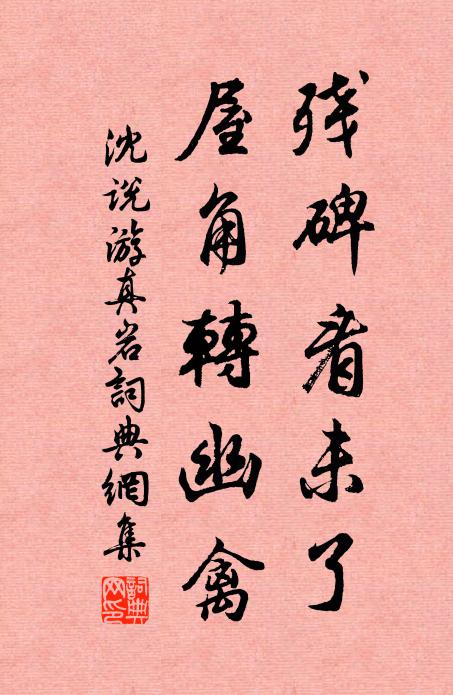 残碑看未了
屋角轉幽禽
沈说游真岩詞典網集
詞典网印